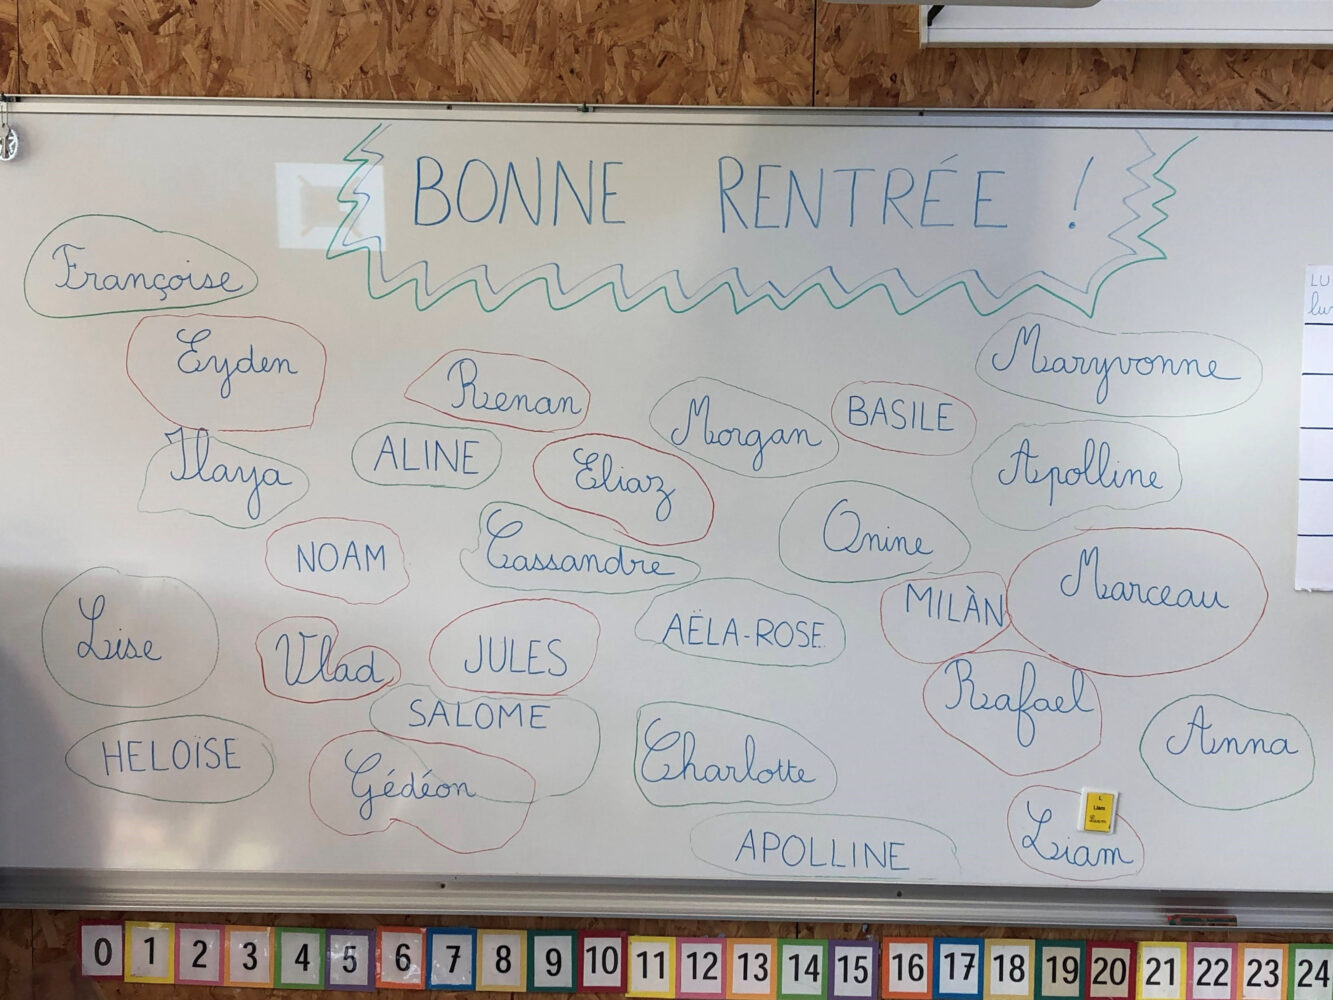 BONNE RENTRÉE !
Françoise
Eyden
Renan
Maryvonne
Morgan
BASILE
Ilaya
ALINE
Eliaz
Apolline
NOAM
Cassandre
Onine
Marceau
Lise
Vlad
JULES
AËLA-ROSE
MILÀN
Rafael
SALOME
HELOÏSE
Gédéon
Charlotte
Anna
APOLLINE
Liam
L
Liam
Liam
LU
lu
0 1 2 3 4 5 6 7 8 9 10 11 12 13 14 15 16 17 18 19 20 21 22 23 24